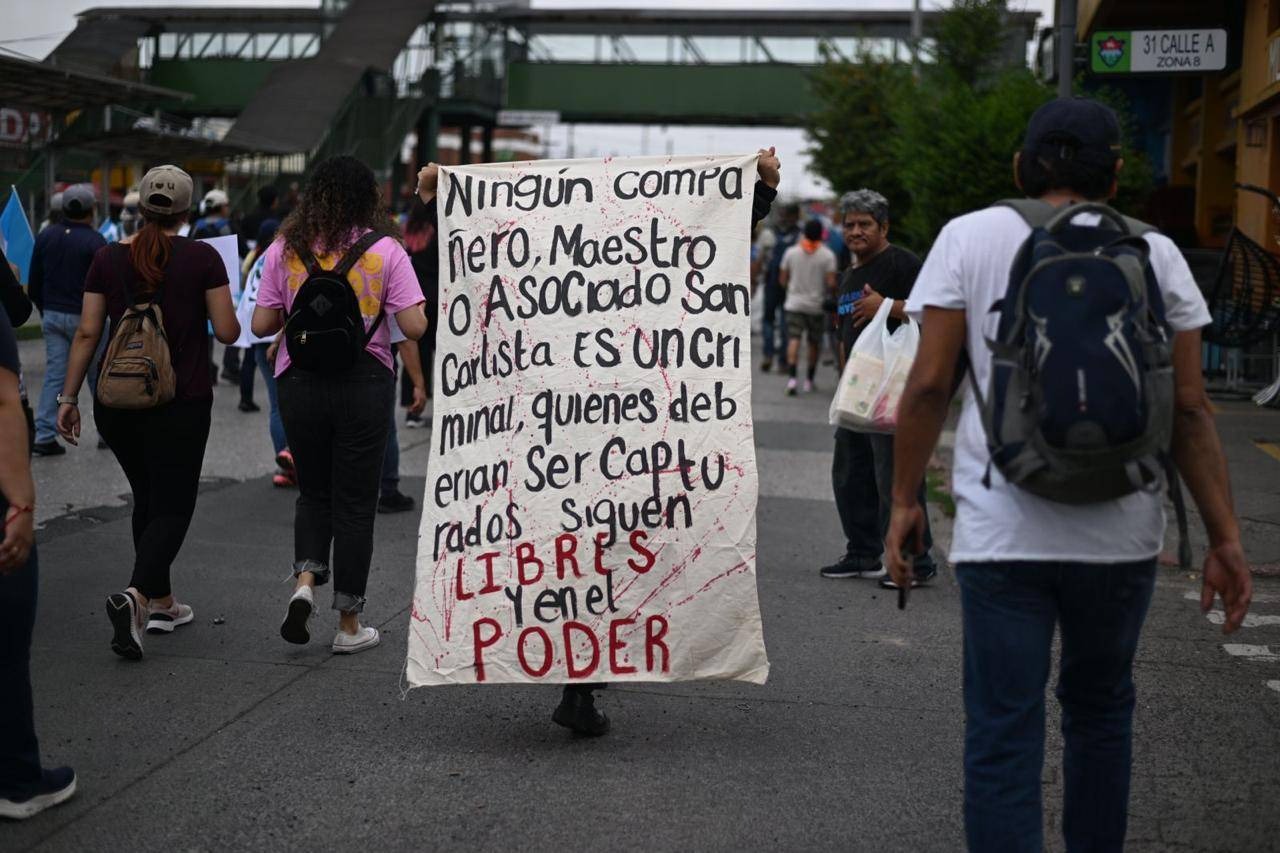 31 CALLE A
ZONA 8
I U
Ningún compa
ñero, Maestro
o Asociado San
Carlista Es un cri
minal, quienes deb
erian Ser Captu
rados siguen
LIBRES
Y en el
PODER